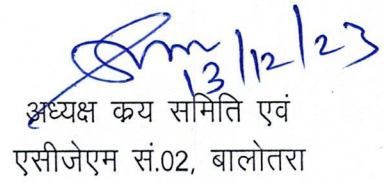 13/12/23
अध्यक्ष क्रय समिति एवं
एसीजेएम सं.02, बालोतरा